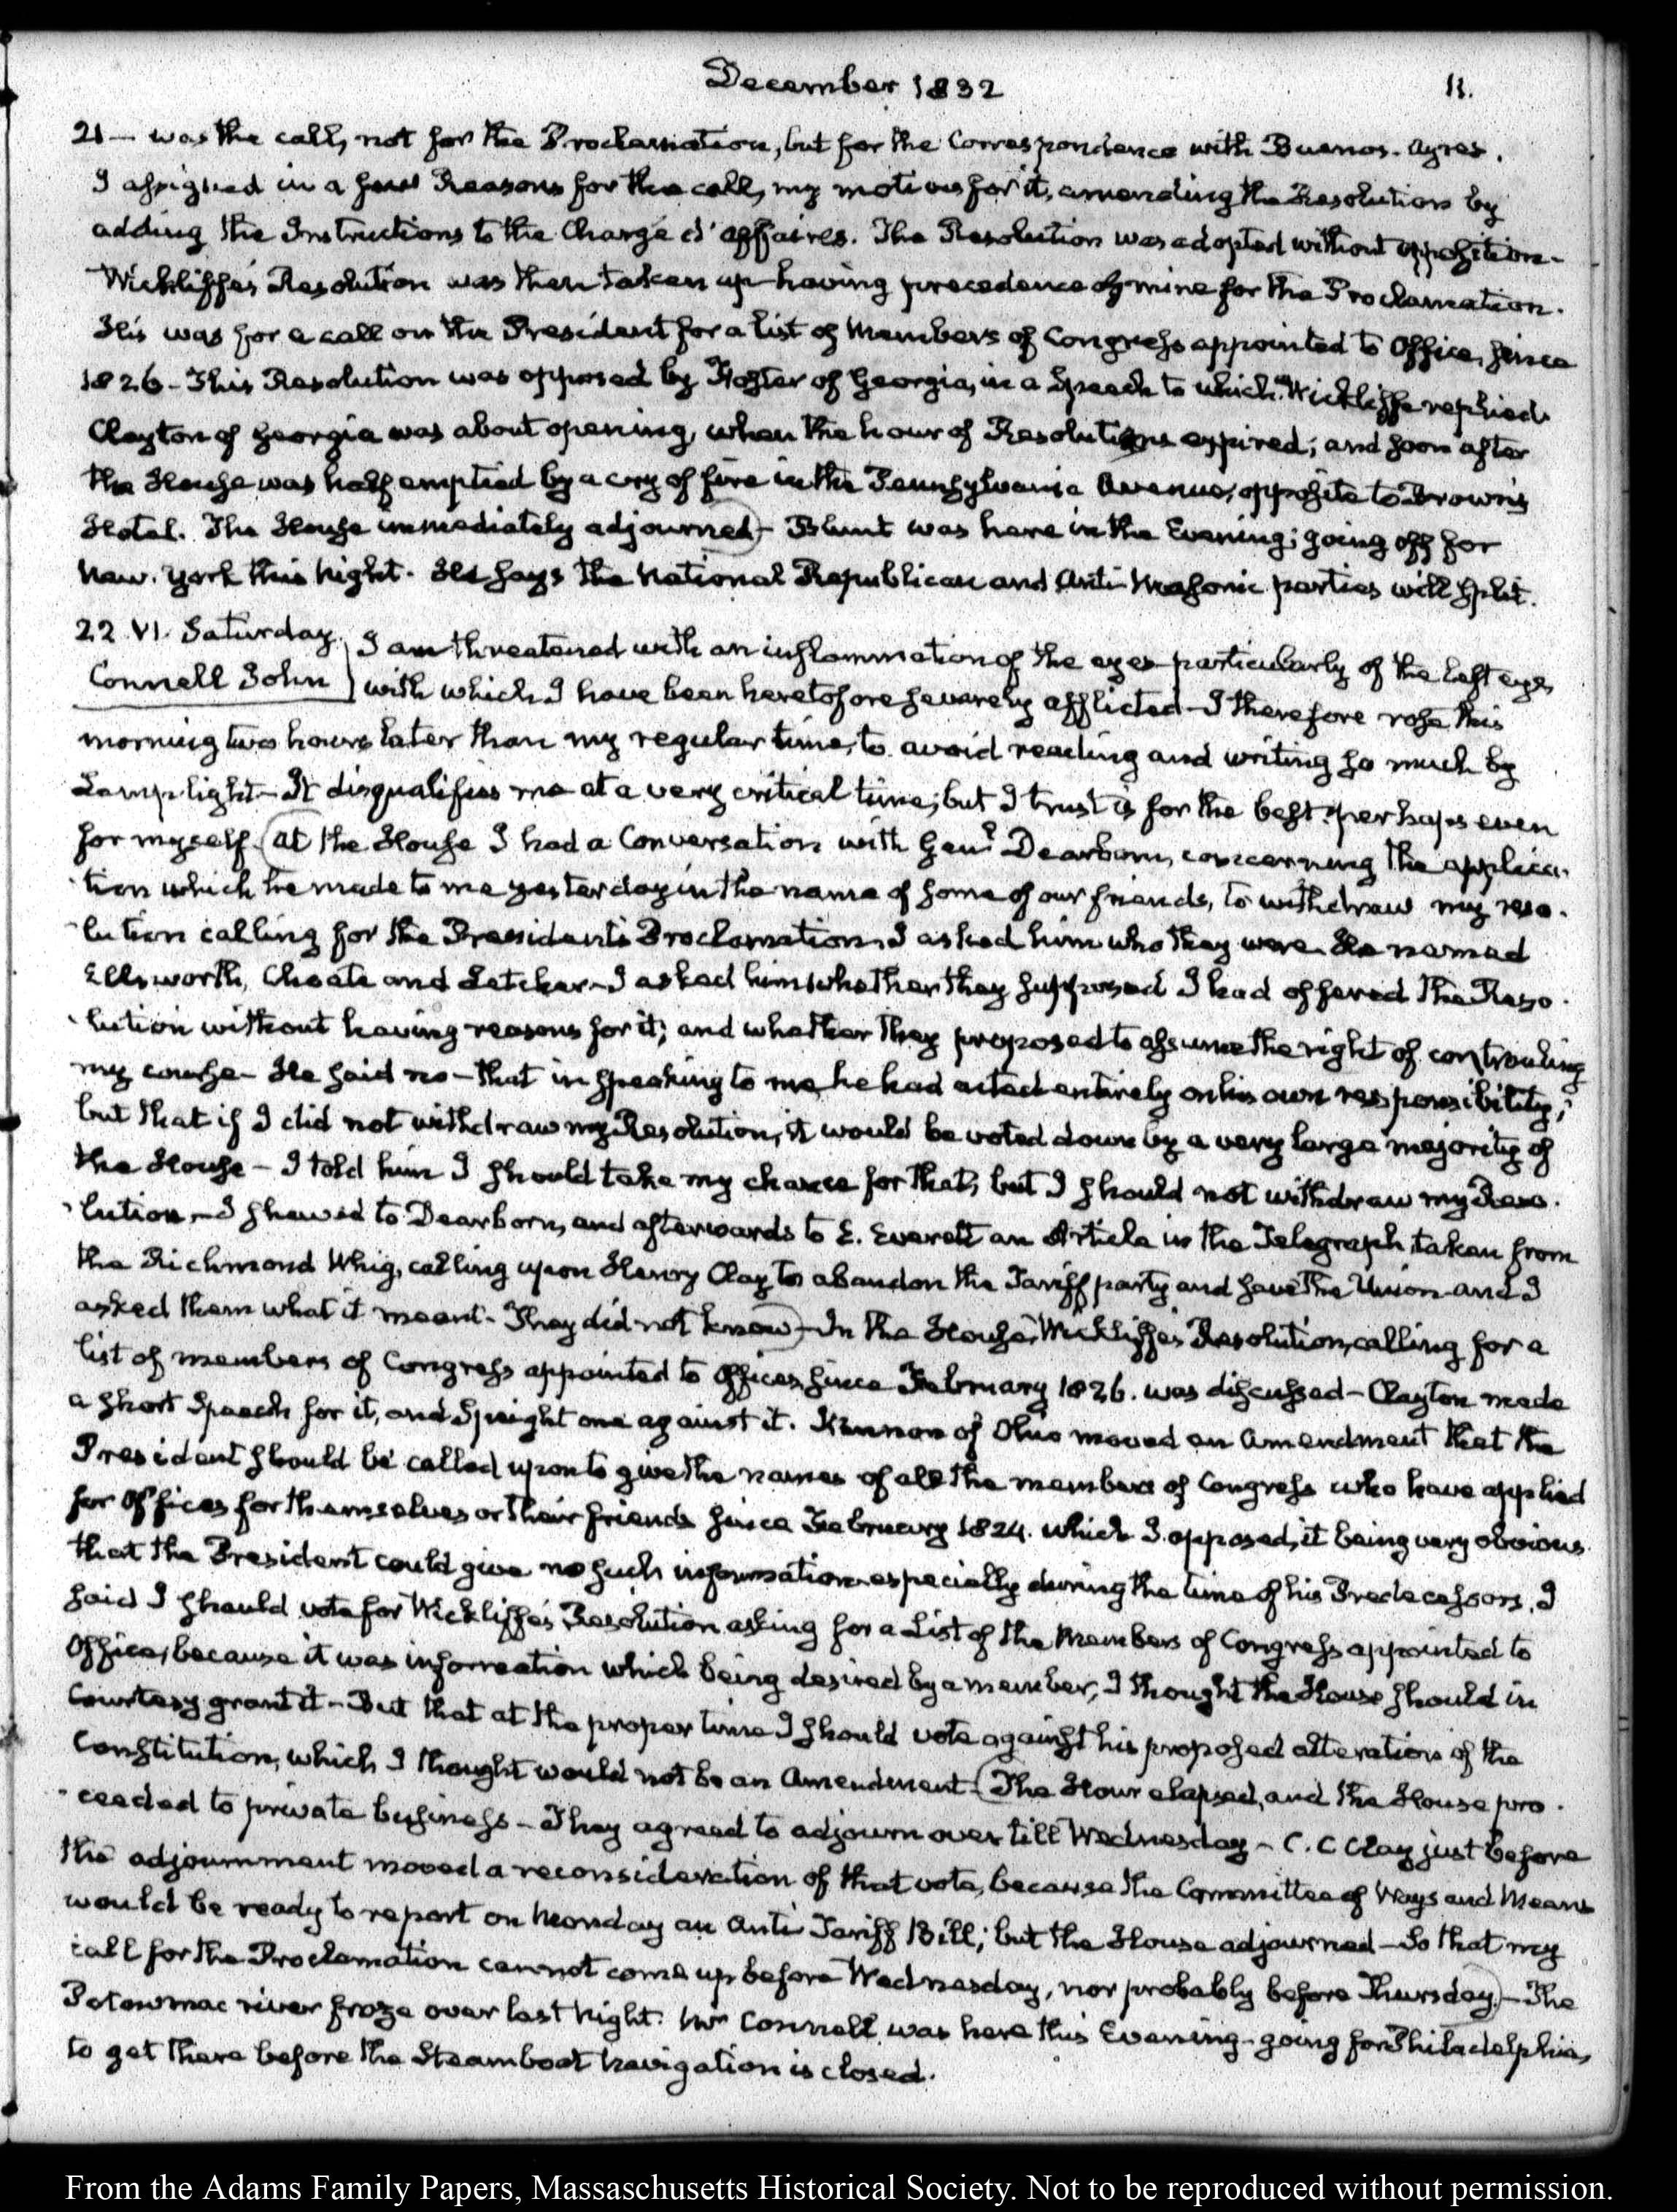 December 1832 11.
21 — was the call, not for the Proclamation, but for the Correspondence with Buenos-Ayres.
I assigned in a few Reasons for the call, my motives for it, amending the Resolution by
adding the Instructions to the Chargé d'affaires. The Resolution was adopted without opposition—
Wickliffe's Resolution was then taken up having precedence of mine for the Proclamation.
His was for a call on the President for a list of Members of Congress appointed to Office, since
1826 – This Resolution was opposed by Foster of Georgia, in a Speech to which Wickliffe replied.
Clayton of Georgia was about opening, when the hour of Resolutions expired; and soon after
the House was half emptied by a cry of fire in the Pennsylvania Avenue, opposite to Brown's
Hotel. The House immediately adjourned) – Blunt was here in the Evening; going off for
New-York this night. He says the National Republican and Anti-Masonic parties will split.
22. VI. Saturday.
Connell John
I am threatened with an inflammation of the eyes particularly of the left eye,
with which I have been heretofore severely afflicted – I therefore rose this
morning two hours later than my regular time, to avoid reading and writing so much by
Lamp-light – It disqualifies me at a very critical time; but I trust is for the best. perhaps even
for myself. (At the House I had a Conversation with Genl. Dearborn, concerning the applica-
-tion which he made to me yesterday in the name of some of our friends, to withdraw my reso-
-lution calling for the President's Proclamation. I asked him who they were. He named
Ellsworth, Choate and Letcher – I asked him whether they supposed I had offered the Reso-
-lution without having reasons for it; and whether they proposed to assume the right of controuling
my course – He said no – that in speaking to me, he had acted entirely on his own responsibility;
but that if I did not withdraw my Resolution, it would be voted down by a very large majority of
the House – I told him I should take my chance for that, but I should not withdraw my Reso-
-lution. – I shewed to Dearborn, and afterwards to E. Everett an Article in the Telegraph, taken from
the Richmond Whig, calling upon Henry Clay to abandon the Tariff party and save the Union – and I
asked them what it meant – They did not know) – In the House, Wickliffe's Resolution, calling for a
list of members of Congress appointed to Offices since February 1826. was discussed – Clayton made
a short Speech for it, and Speight one against it. Kennon of Ohio moved an Amendment that the
President should be called upon to give the names of all the members of Congress who have applied
for Offices for themselves or their friends since February 1824. which I opposed, it being very obvious
that the President could give no such information especially during the time of his Predecessors. I
said I should vote for Wickliffe's Resolution asking for a List of the Members of Congress appointed to
Office, because it was information which being desired by a member, I thought the House should in
Courtesy grant it – But that at the proper time I should vote against his proposed alteration of the
Constitution, which I thought would not be an Amendment – (The Hour elapsed, and the House pro-
-ceeded to private business – They agreed to adjourn over till Wednesday – C. C Clay just before
the adjournment moved a reconsideration of that vote, because the Committee of Ways and Means
would be ready to report on Monday an Anti Tariff Bill; but the House adjourned – So that my
call for the Proclamation cannot come up before Wednesday, nor probably before Thursday.) – The
Potowmac river froze over last Night. Mr Connell was here this Evening – going for Philadelphia,
to get there before the Steamboat Navigation is closed.
From the Adams Family Papers, Massachusetts Historical Society. Not to be reproduced without permission.